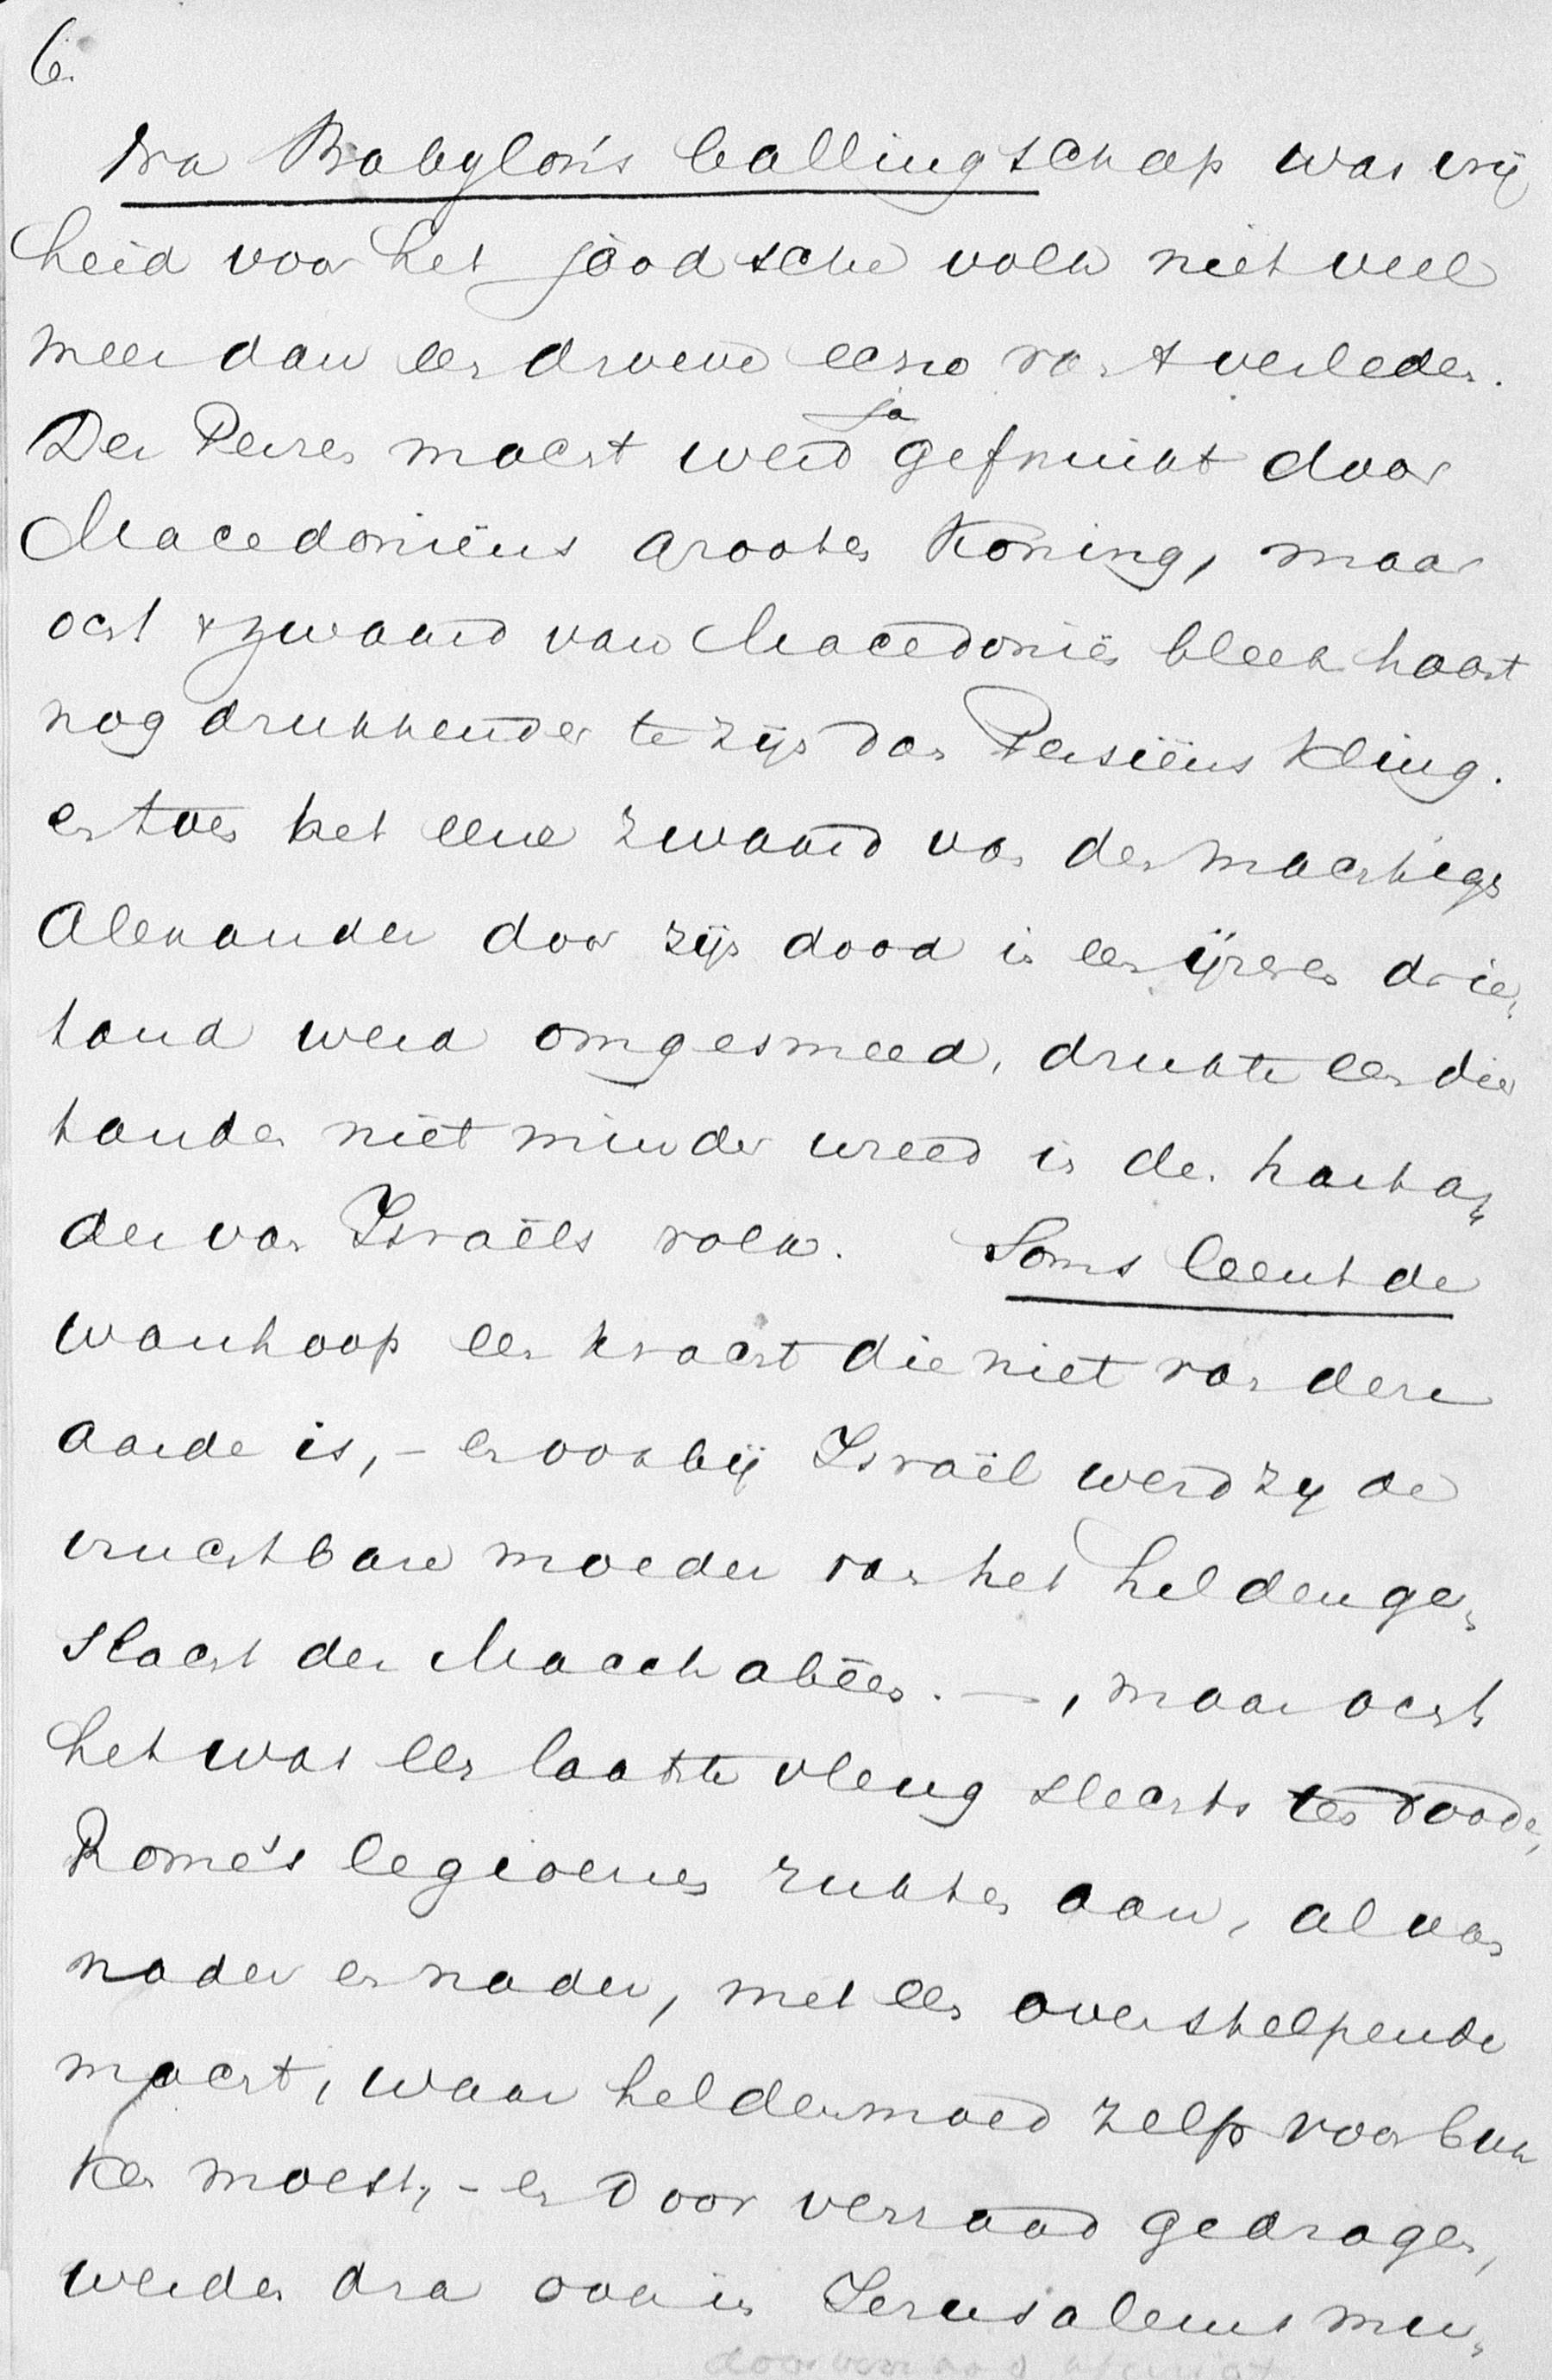 6.
Na Babylon's ballingschap was vrij
heid voor het joodsche volk niet veel
meer dan een droeve echo van 't verleden.
Der Perzen macht werd ja gefnuikt door
Macedoniëns grooten Koning, maar
ach 't zwaard van Macedoniën bleek haast
nog drukkender te zijn dan Persiëns kling.
en toen het eene zwaard van den machtigen
Alexander door zijn dood in een ijzeren drie,
tand werd omgesmeed, drukte een dier
tanden niet minder wreed in de hartader
der van Israëls volk. Soms leent de
wanhoop een kracht die niet van deze
aarde is, – en ook bij Israël werd zij de
vruchtbare moeder van het heldenge,
slacht der Macchabëen. —, maar ach
het was een laatste vleug slechts ten doode,
Rome's legioenen rukten aan, al van
nader en nader, met een overstelpende
macht, waar heldenmoed zelf voor buk
ken moest, – en door verraad gedragen,
werden dra ook in Jerusalems mu,